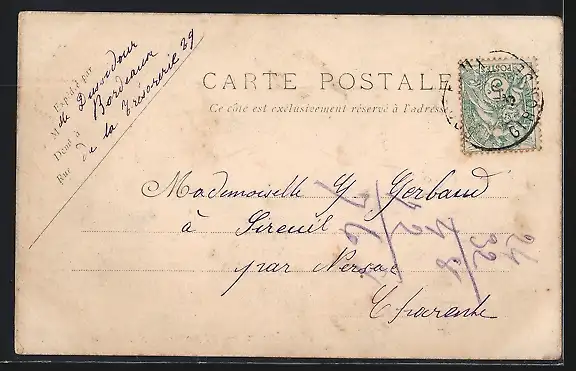 Expédié par
M de Dusoidour
Demt à Bordeaux
Rue de la Trésorerie 29
CARTE POSTALE
Ce côté est exclusivement réservé à l'adresse
Mademoiselle Y Gerbaud
à Sireuil
par Nersac
Charente